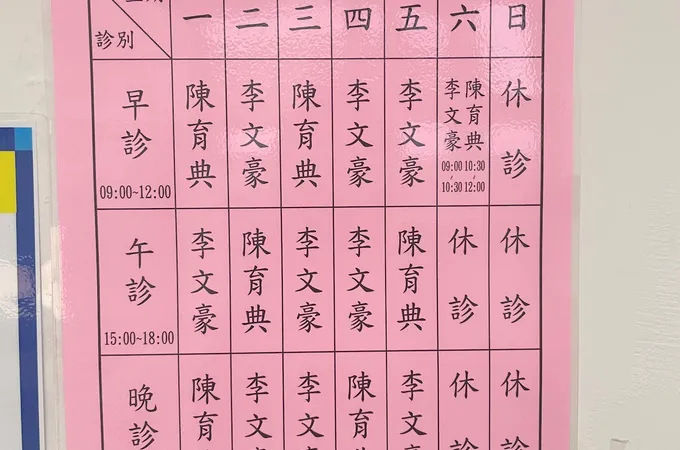 診別 一 二 三 四 五 六 日
早診 09:00~12:00 陳育典 李文豪 陳育典 李文豪 李文豪 李文豪 09:00~10:30 陳育典 10:30~12:00 休診
午診 15:00~18:00 李文豪 陳育典 李文豪 李文豪 陳育典 休診 休診
晚診 陳育 李文 李文 陳育 李文 休診 休診